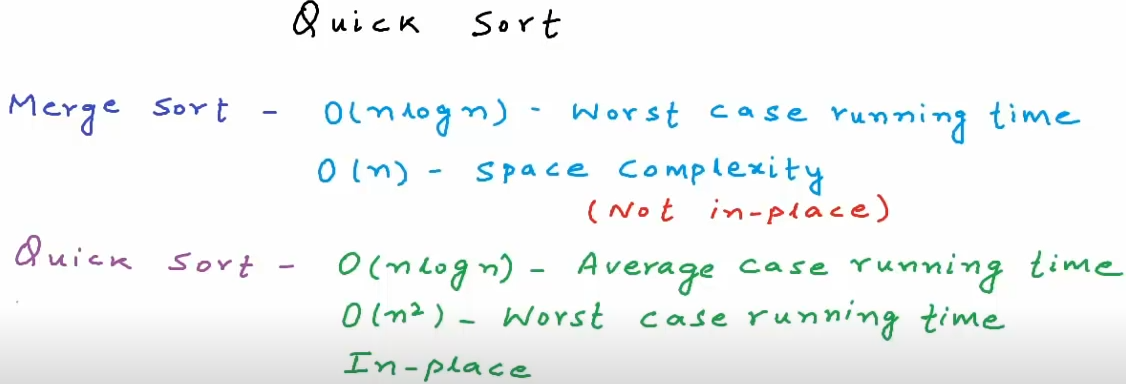 Quick Sort
Merge Sort - O(nlogn) - Worst case running time
O(n) - Space Complexity
(Not in-place)
Quick Sort - O(nlogn) - Average case running time
O(n²) - Worst case running time
In-place